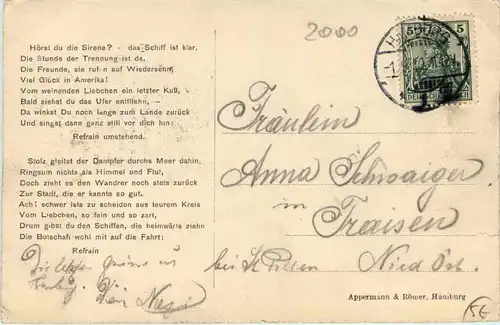 2000
5
Hörst du die Sirene? - das Schiff ist klar,
Die Stunde der Trennung ist da,
Die Freunde, sie rufen auf Wiedersehn,
Viel Glück in Amerika!
Vom weinenden Liebchen ein letzter Kuß,
Bald siehst du das Ufer entfliehn, —
Da winkst Du noch lange zum Lande zurück
Und singst dann ganz still vor dich hin:
Refrain umstehend.
Stolz gleitet der Dampfer durchs Meer dahin,
Ringsum nichts als Himmel und Flut,
Doch zieht es den Wandrer noch stets zurück
Zur Stadt, die er kannte so gut.
Ach! schwer ists zu scheiden aus teurem Kreis
Vom Liebchen, so fein und so zart,
Drum gibst du den Schiffen, die heimwärts ziehn
Die Botschaft wohl mit auf die Fahrt:
Refrain
Die letzten Grüsse
Fräulein
Anna Schwaiger
in Traisen
bei St. Pölten
Nied Öst.
Appermann & Römer, Hamburg
5€